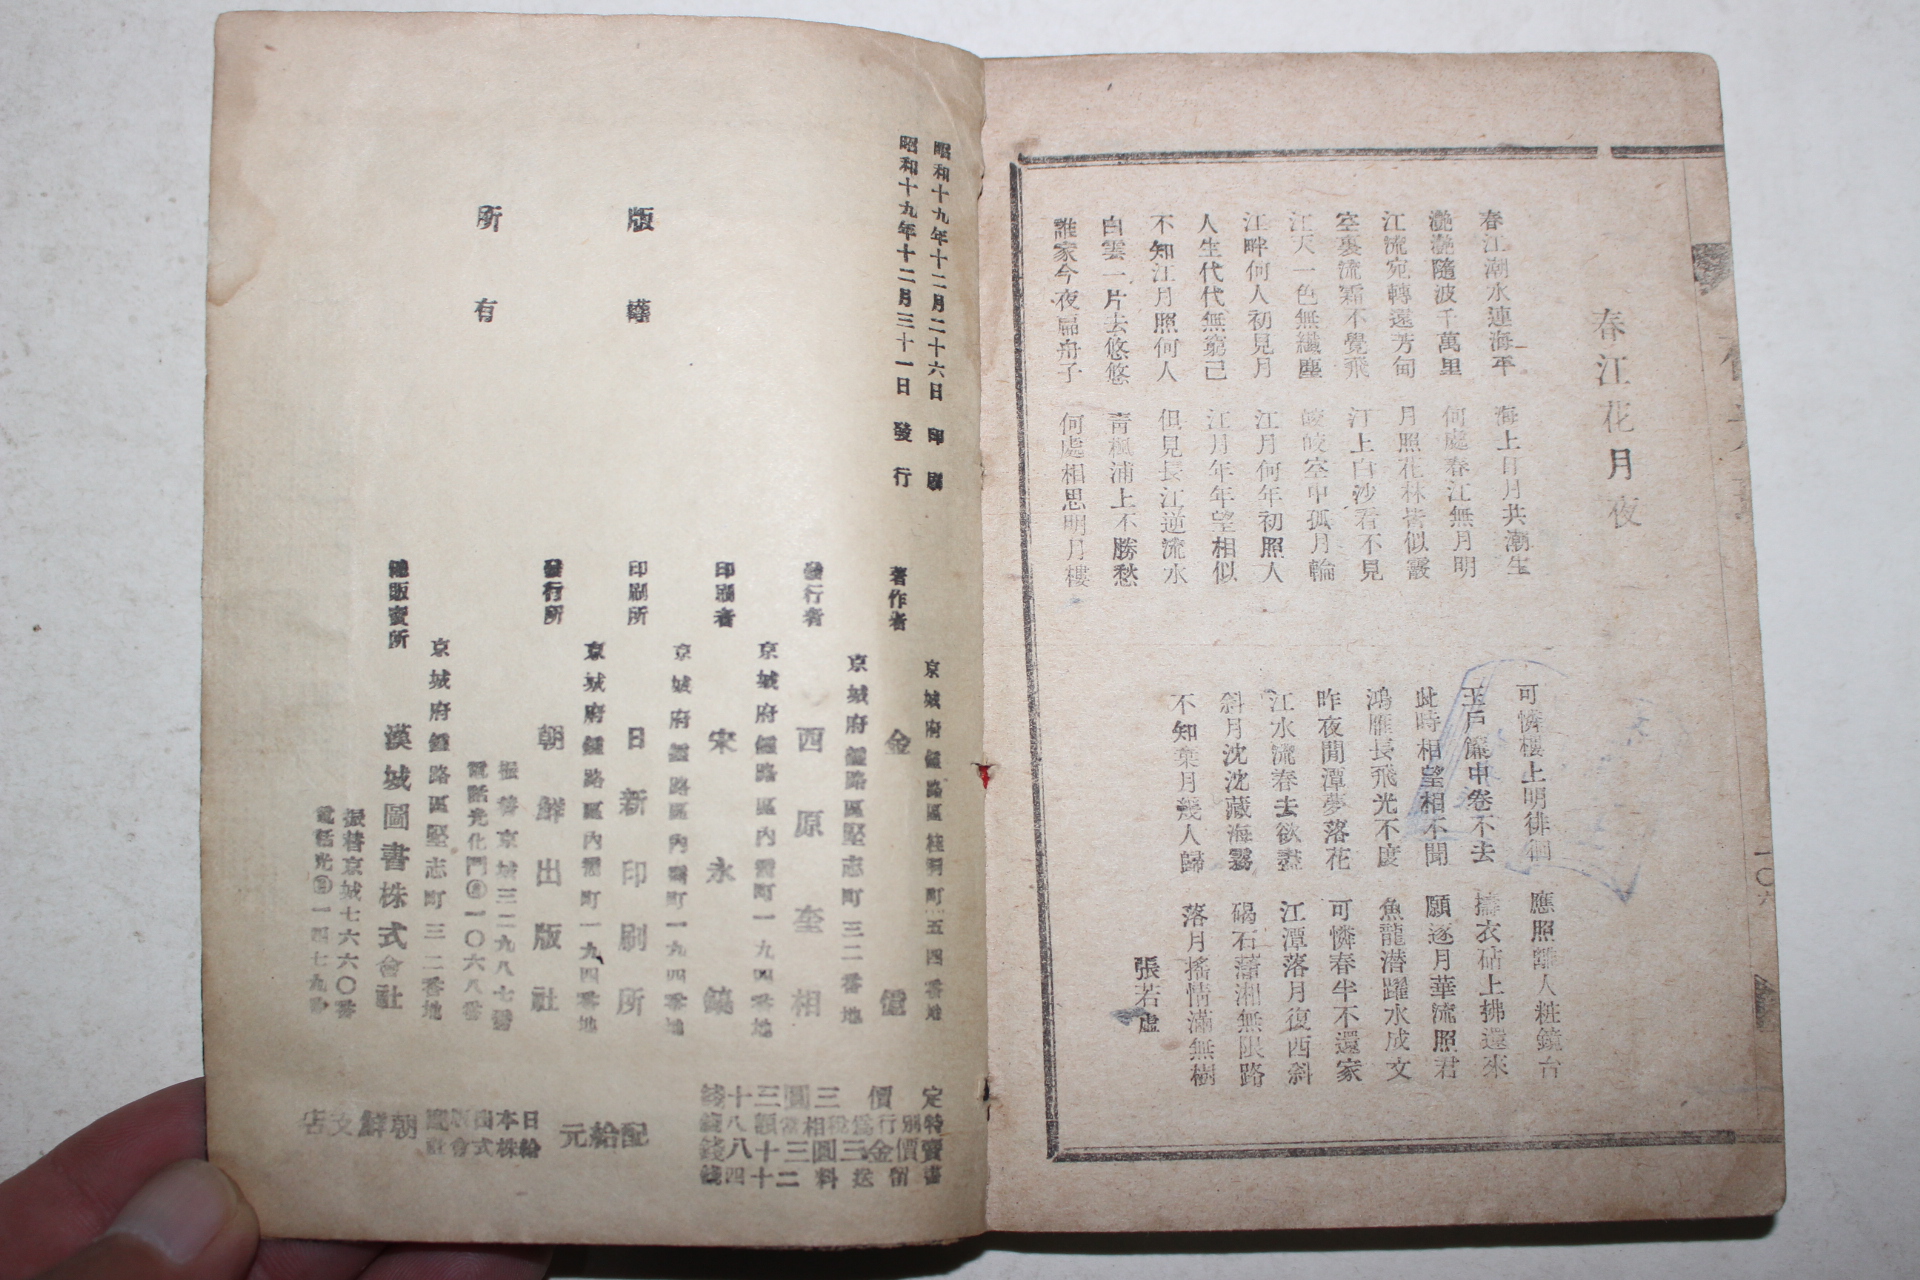 春江花月夜
春江潮水連海平　海上日月共潮生
灔灔隨波千萬里　何處春江無月明
江流宛轉遠芳甸　月照花林皆似霰
空裏流霜不覺飛　汀上白沙看不見
江天一色無纖塵　皎皎空中孤月輪
江畔何人初見月　江月何年初照人
人生代代無窮己　江月年年望相似
不知江月照何人　但見長江逆流水
白雲一片去悠悠　靑楓浦上不勝愁
誰家今夜扁舟子　何處相思明月樓
可憐樓上明徘徊　應照離人粧鏡台
玉戶簾中卷不去　擣衣砧上拂還來
此時相望相不聞　願逐月華流照君
鴻雁長飛光不度　魚龍潛躍水成文
昨夜閒潭夢落花　可憐春半不還家
江水流春去欲盡　江潭落月復西斜
斜月沈沈藏海霧　碣石蕭湘無限路
不知葉月幾人歸　落月搖情滿無樹
張若虛
一〇六
昭和十九年十二月二十六日 印刷
昭和十九年十二月三十一日 發行
版權
所有
京城府鍾路區桂洞町五四番地
著作者 金億
京城府鍾路區堅志町三二番地
發行者 西原奎相
京城府鍾路區內需町一九四番地
印刷者 宋永鎬
京城府鍾路區內需町一九四番地
印刷所 日新印刷所
京城府鍾路區內需町一九四番地
發行所 朝鮮出版社
振替京城三二九八七番
電話光化門一〇六八番
京城府鍾路區堅志町三二番地
總販賣所 漢城圖書株式會社
振替京城七六六〇番
電話光一四七九番
定價 三圓三十錢
特別行爲稅相當額八錢
賣價金三圓三十八錢
書留送料 二十四錢
配給元 日本出版株式會社
朝鮮支店